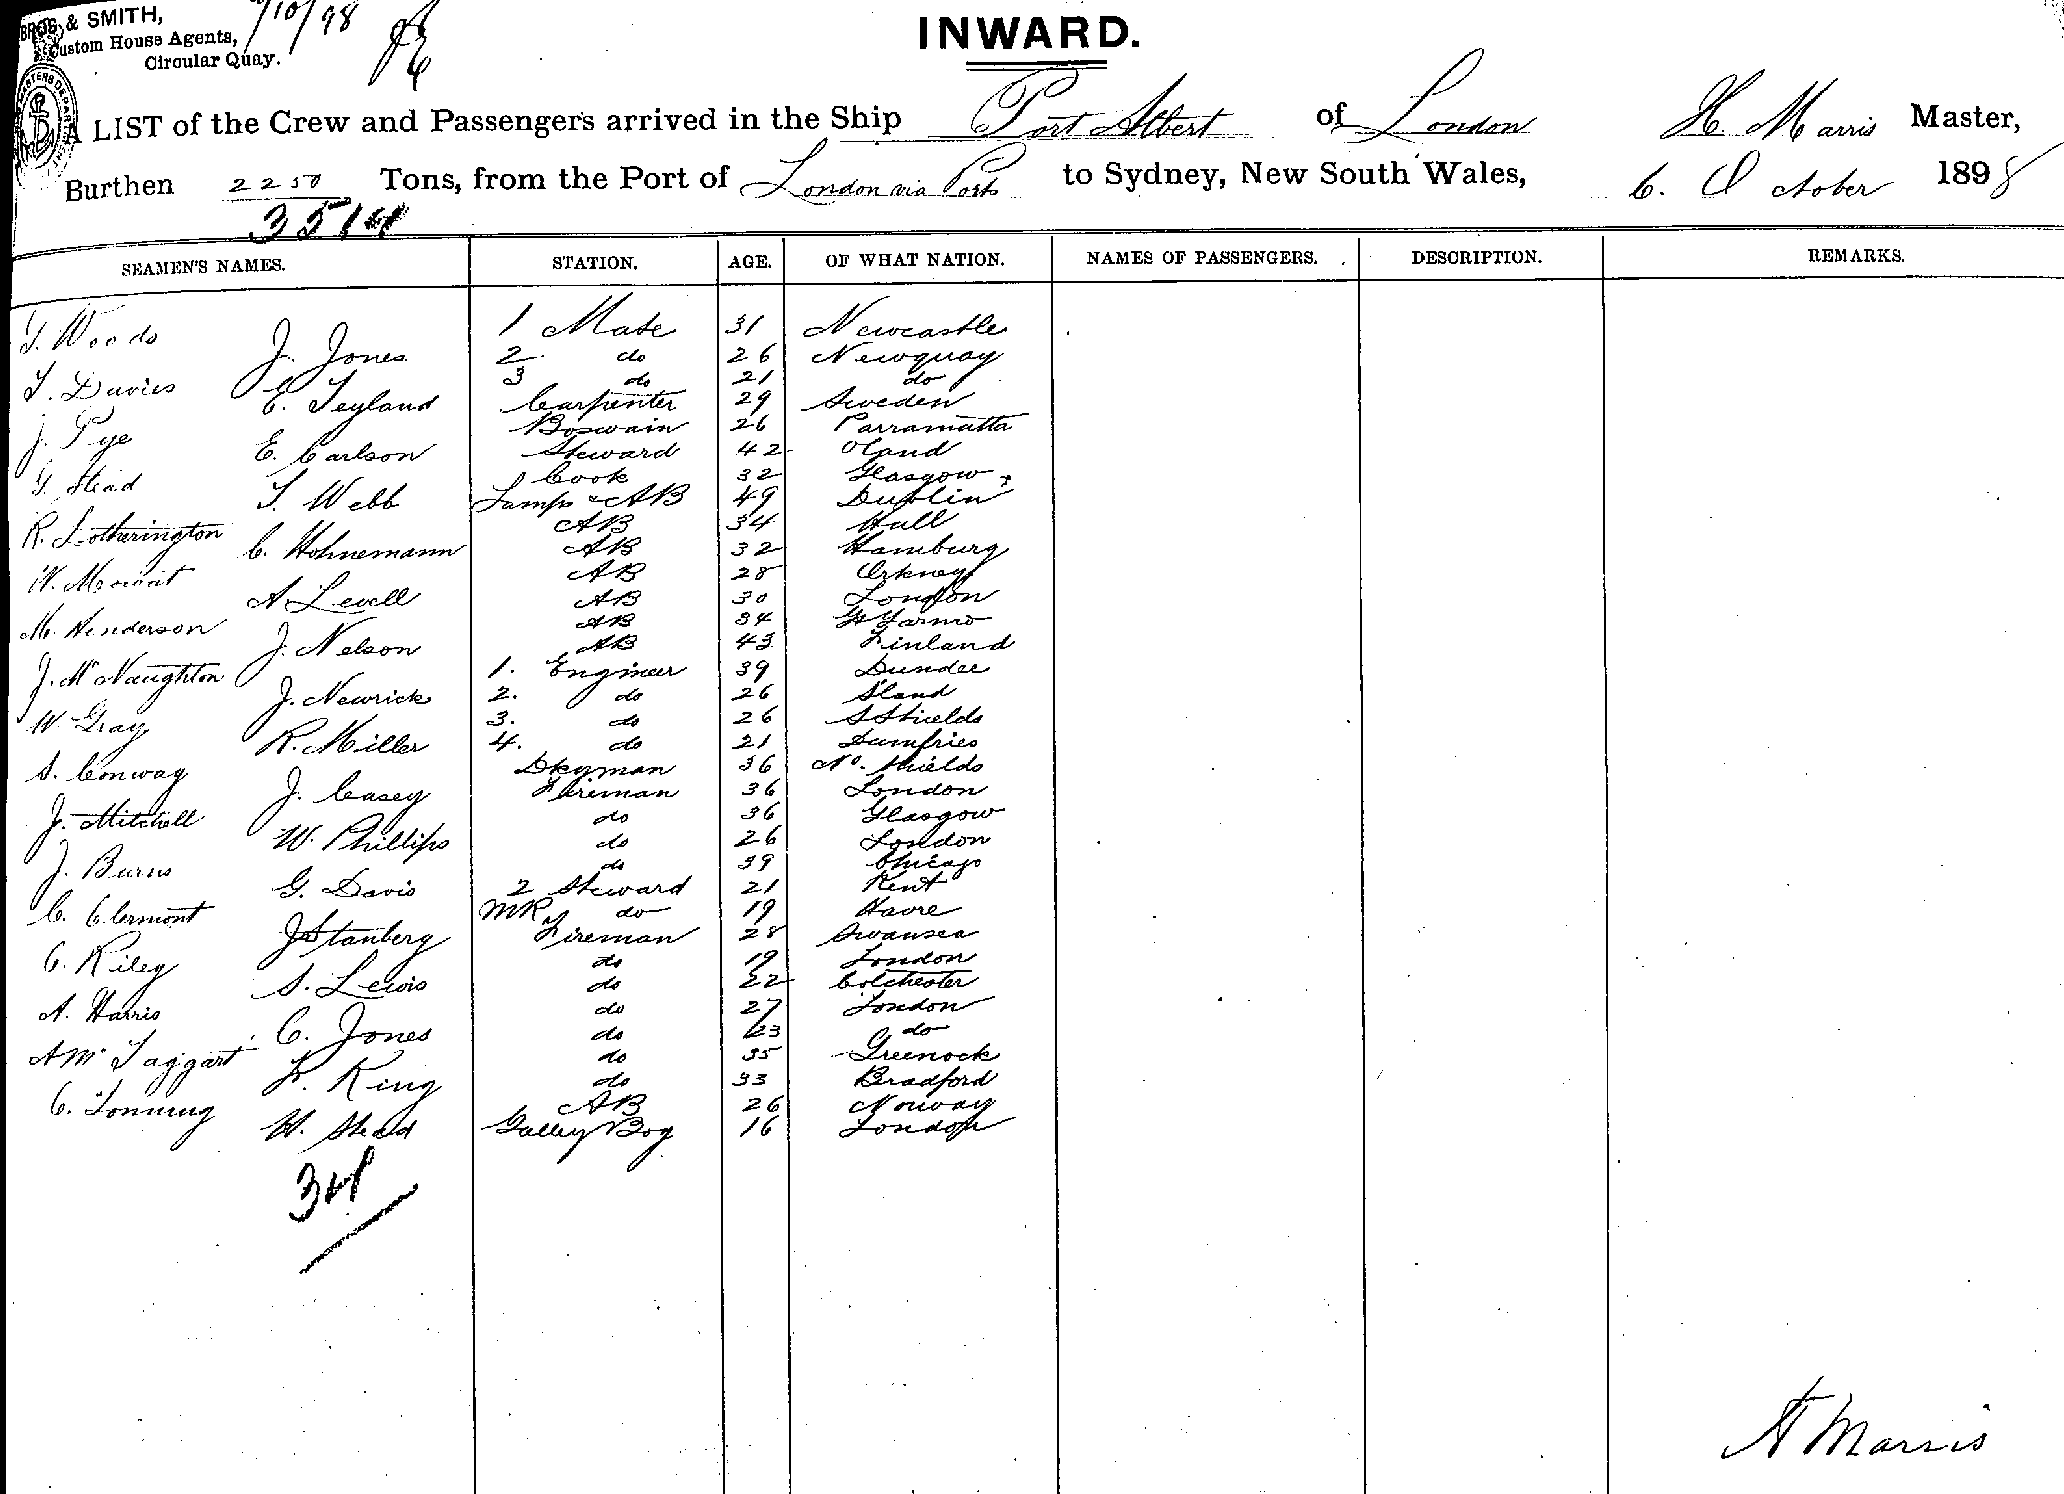 BROS. & SMITH,
Custom House Agents,
Circular Quay.
/10/98
INWARD.
A LIST of the Crew and Passengers arrived in the Ship Port Albert of London H. Marris Master,
Burthen 2250 Tons, from the Port of London via Ports to Sydney, New South Wales, 6. October 1898
3514
SEAMEN'S NAMES. STATION. AGE. OF WHAT NATION. NAMES OF PASSENGERS. DESCRIPTION. REMARKS.
T. Woods 1 Mate 31 Newcastle
J. Jones 2. do 26 Newquay
T. Davies 3 do 21 do
E. Teyland Carpenter 29 Sweden
J. Pye Boswain 26 Parramatta
E. Carlson Steward 42 Oland
G. Stead Cook 32 Glasgow
T. Webb Lamps & AB 49 Dublin
R. Lotherington AB 34 Hull
C. Hohnemann AB 32 Hamburg
W. Mowat AB 28 Orkney
A Levell AB 30 London
M. Henderson AB 34 Gt Yarmo
J. Nelson AB 43 Finland
J. McNaughton 1. Engineer 39 Dundee
J. Newrick 2. do 26 Sland
W. Gray 3. do 26 S Shields
R. Miller 4. do 21 Dumfries
S. Conway Dkyman 36 No. Shields
J. Casey Fireman 36 London
J. Mitchell do 36 Glasgow
W. Phillips do 26 London
J. Burns do 39 Chicago
G. Davis 2 Steward 21 Kent
C. Clermont MR do 19 Havre
J Stanberg Fireman 28 Swansea
C. Riley do 19 London
S. Lewis do 22 Colchester
A. Harris do 27 London
C. Jones do 23 do
A Mc Taggart do 35 Greenock
King do 33 Bradford
C. Tonning AB 26 Norway
W. Stead Galley Boy 16 London
34
H Marris